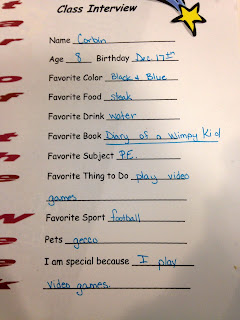 Class Interview
Name Corbin
Age 8 Birthday Dec. 17th
Favorite Color Black & Blue
Favorite Food steak
Favorite Drink water
Favorite Book Diary of a Wimpy Kid
Favorite Subject P.E.
Favorite Thing to Do play video
games
Favorite Sport football
Pets gecco
I am special because I play
video games.